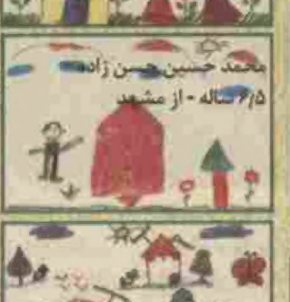 محمد حسین حسن زاده
۶/۵ ساله - از مشهد